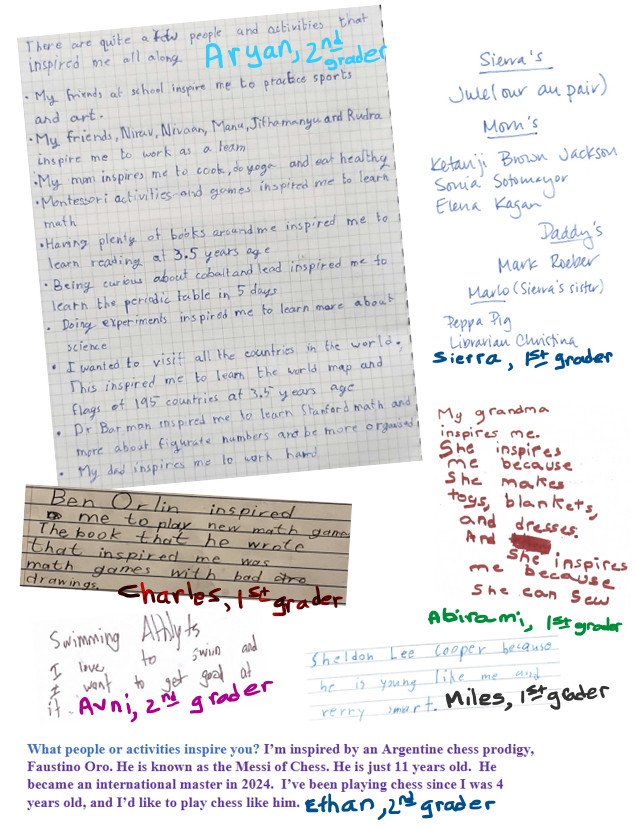 There are quite a few people and activities that
inspired me all along.
Aryan, 2nd
grader
• My friends at school inspire me to practice sports
and art.
• My friends, Nirav, Nivaan, Manu, Jithamanyu and Rudra
inspire me to work as a team
• My mum inspires me to cook, do yoga and eat healthy
• Montessori activities and games inspired me to learn
math
• Having plenty of books around me inspired me to
learn reading at 3.5 years age
• Being curious about cobalt and lead inspired me to
learn the periodic table in 5 days
• Doing experiments inspired me to learn more about
science
• I wanted to visit all the countries in the world.
This inspired me to learn the world map and
flags of 195 countries at 3.5 years age
• Dr Barman inspired me to learn Stanford math and
more about figurate numbers and be more organised
• My dad inspires me to work hard
Sierra's
Jule (our au pair)
Mom's
Ketanji Brown Jackson
Sonia Sotomayor
Elena Kagan
Daddy's
Mark Roeber
Marlo (Sierra's sister)
Peppa Pig
Librarian Christina
Sierra, 1st grader
My grandma
inspires me.
She inspires
me because
She makes
toys, blankets,
and dresses.
And
She inspires
me because
She can sew
Abirami, 1st grader
Ben Orlin inspired
me to play new math game
The book that he wrote
that inspired me was
math games with bad
drawings.
Charles, 1st grader
Swimming Athlyts
I love to swim and
I want to get good at
it.
Avni, 2nd grader
Sheldon Lee Cooper because
he is young like me and
verry smart.
Miles, 1st grader
What people or activities inspire you? I'm inspired by an Argentine chess prodigy,
Faustino Oro. He is known as the Messi of Chess. He is just 11 years old. He
became an international master in 2024. I've been playing chess since I was 4
years old, and I'd like to play chess like him.
Ethan, 2nd grader